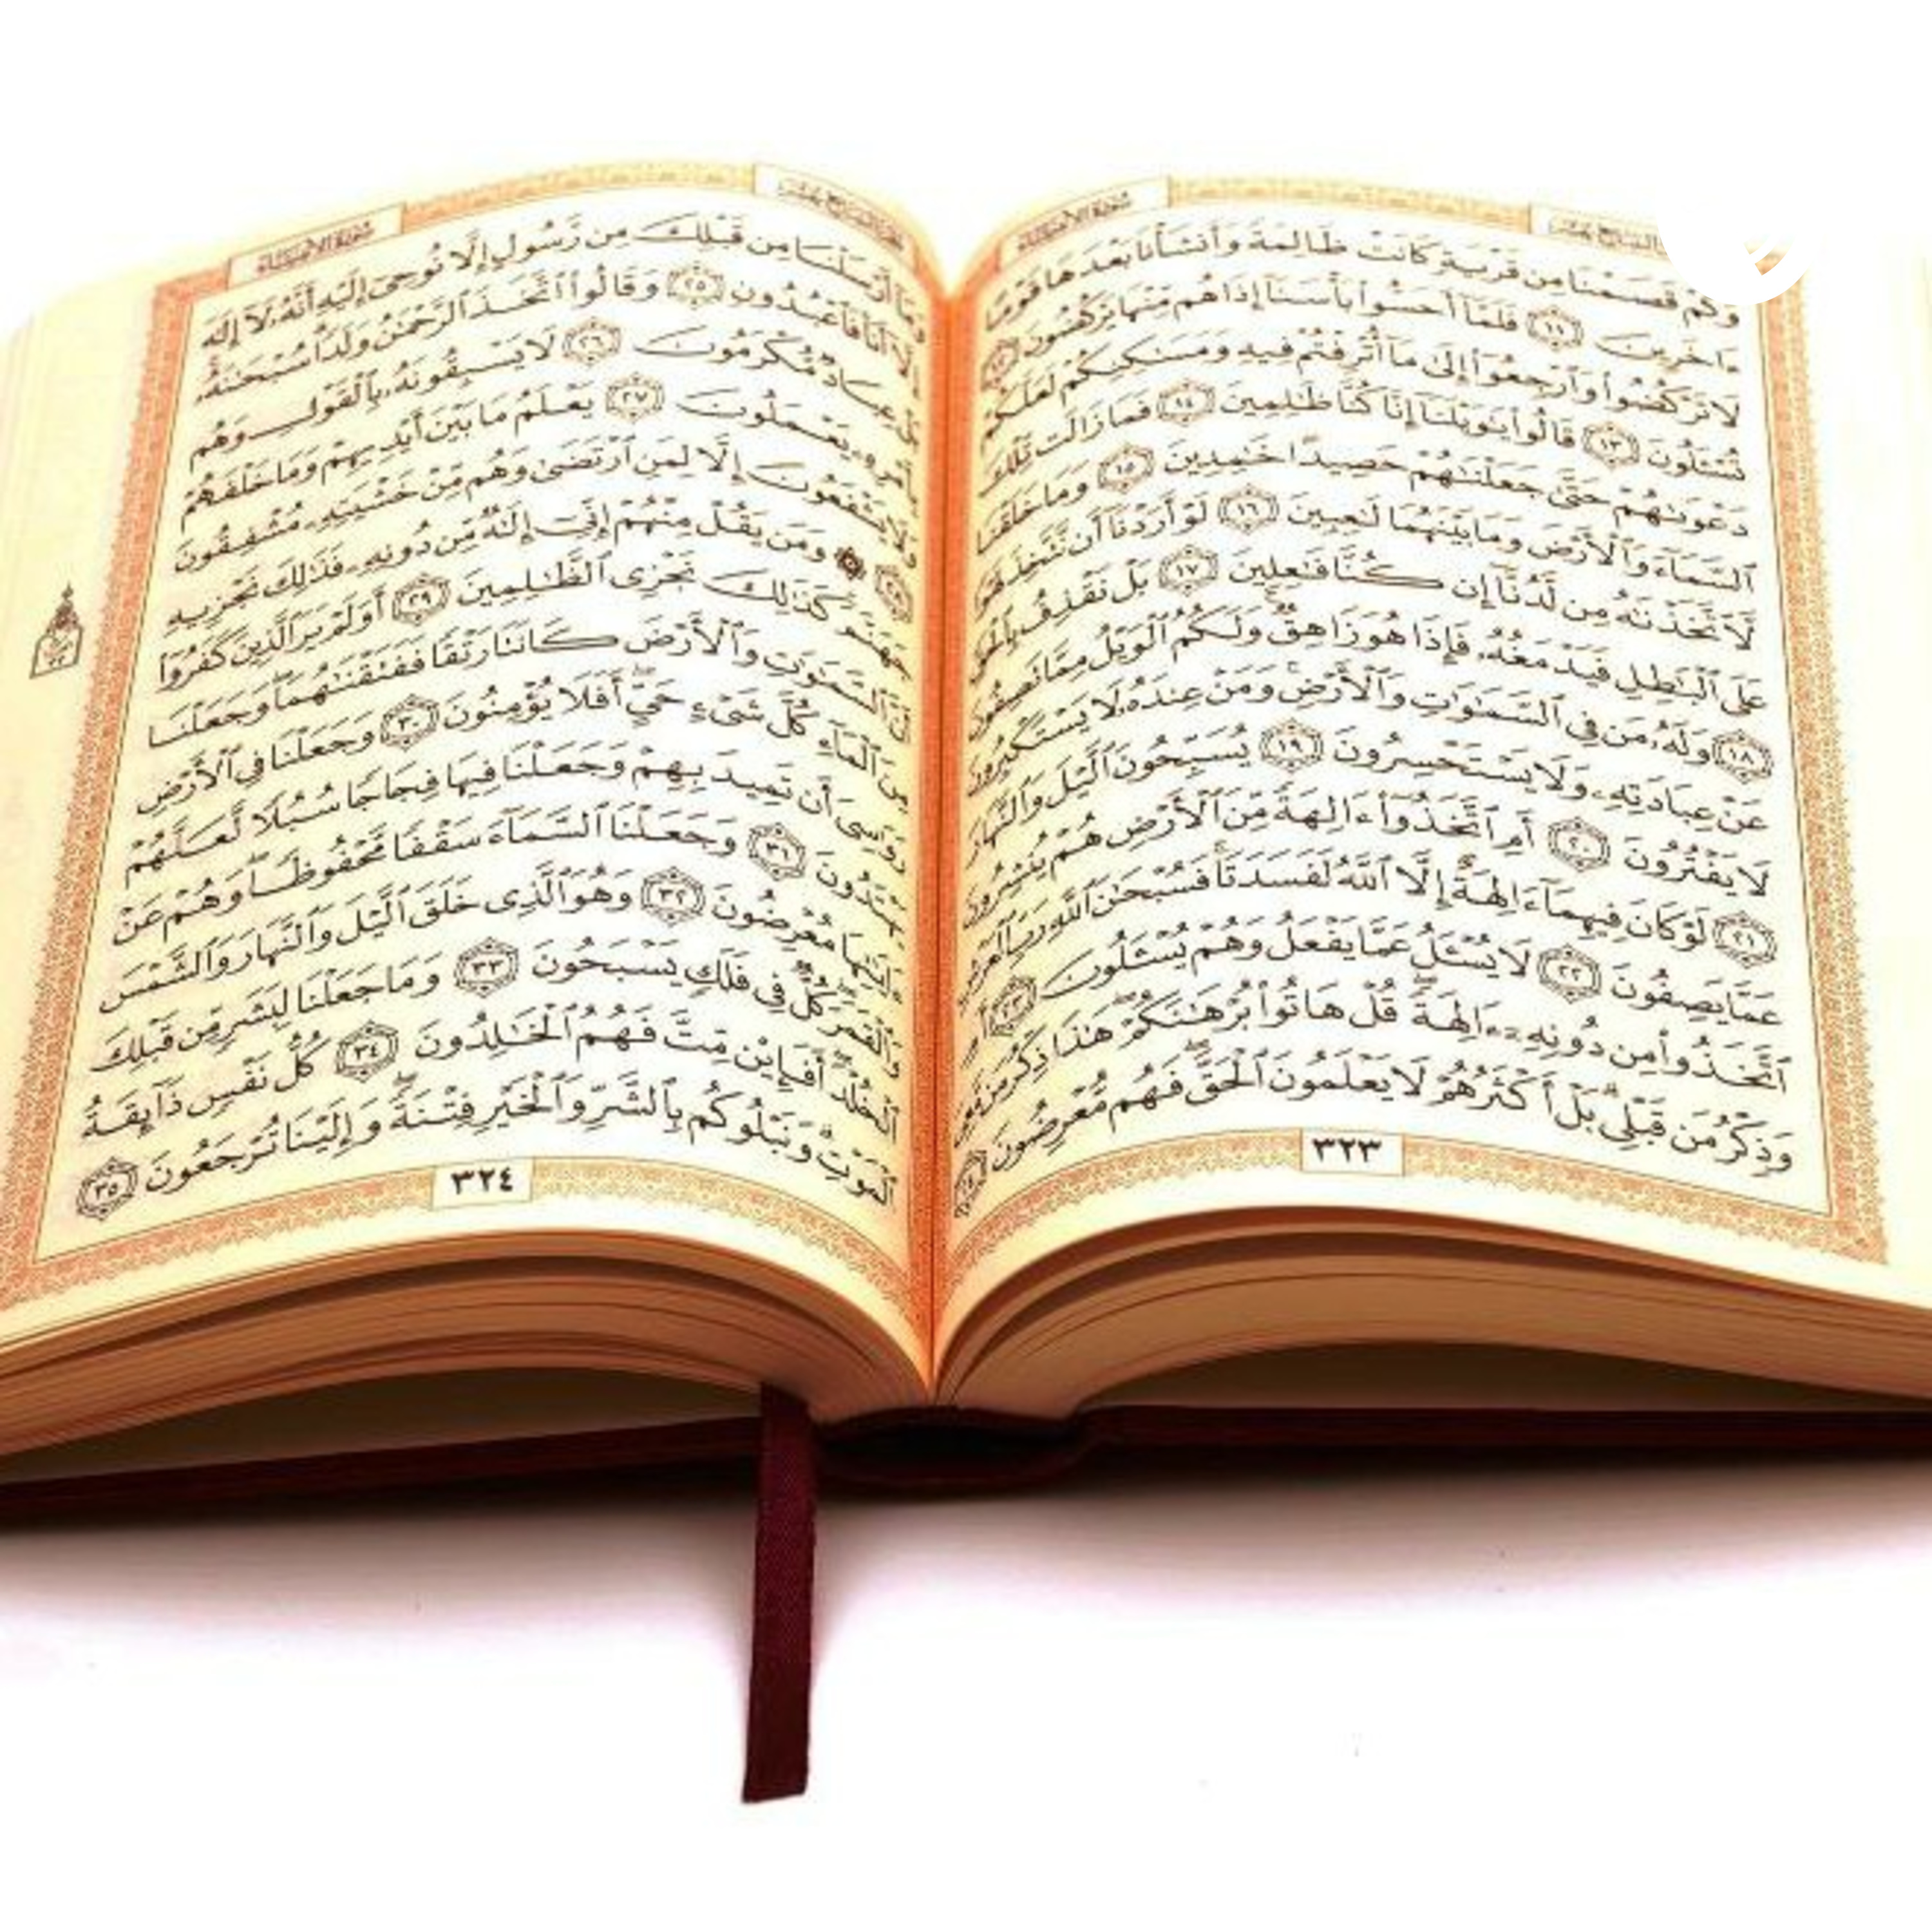 سُورَةُ الأَنبِيَاءِ
وَكَمْ قَصَمْنَا مِن قَرْيَةٍ كَانَتْ ظَالِمَةً وَأَنشَأْنَا بَعْدَهَا قَوْمًا
ءَاخَرِينَ ١١ فَلَمَّآ أَحَسُّوا۟ بَأْسَنَآ إِذَا هُم مِّنْهَا يَرْكُضُونَ ١٢
لَا تَرْكُضُوا۟ وَٱرْجِعُوٓا۟ إِلَىٰ مَآ أُتْرِفْتُمْ فِيهِ وَمَسَٰكِنِكُمْ لَعَلَّكُمْ
تُسْـَٔلُونَ ١٣ قَالُوا۟ يَٰوَيْلَنَآ إِنَّا كُنَّا ظَٰلِمِينَ ١٤ فَمَا زَالَت تِّلْكَ
دَعْوَىٰهُمْ حَتَّىٰ جَعَلْنَٰهُمْ حَصِيدًا خَٰمِدِينَ ١٥ وَمَا خَلَقْنَا
ٱلسَّمَآءَ وَٱلْأَرْضَ وَمَا بَيْنَهُمَا لَٰعِبِينَ ١٦ لَوْ أَرَدْنَآ أَن نَّتَّخِذَ لَهْوًا
لَّٱتَّخَذْنَٰهُ مِن لَّدُنَّآ إِن كُنَّا فَٰعِلِينَ ١٧ بَلْ نَقْذِفُ بِٱلْحَقِّ
عَلَى ٱلْبَٰطِلِ فَيَدْمَغُهُۥ فَإِذَا هُوَ زَاهِقٌ ۚ وَلَكُمُ ٱلْوَيْلُ مِمَّا تَصِفُونَ
١٨ وَلَهُۥ مَن فِى ٱلسَّمَٰوَٰتِ وَٱلْأَرْضِ ۚ وَمَنْ عِندَهُۥ لَا يَسْتَكْبِرُونَ
عَنْ عِبَادَتِهِۦ وَلَا يَسْتَحْسِرُونَ ١٩ يُسَبِّحُونَ ٱلَّيْلَ وَٱلنَّهَارَ
لَا يَفْتُرُونَ ٢٠ أَمِ ٱتَّخَذُوٓا۟ ءَالِهَةً مِّنَ ٱلْأَرْضِ هُمْ يُنشِرُونَ
٢١ لَوْ كَانَ فِيهِمَآ ءَالِهَةٌ إِلَّا ٱللَّهُ لَفَسَدَتَا ۚ فَسُبْحَٰنَ ٱللَّهِ رَبِّ ٱلْعَرْشِ
عَمَّا يَصِفُونَ ٢٢ لَا يُسْـَٔلُ عَمَّا يَفْعَلُ وَهُمْ يُسْـَٔلُونَ ٢٣ أَمِ
ٱتَّخَذُوا۟ مِن دُونِهِۦٓ ءَالِهَةً ۖ قُلْ هَاتُوا۟ بُرْهَٰنَكُمْ ۖ هَٰذَا ذِكْرُ مَن مَّعِىَ
وَذِكْرُ مَن قَبْلِى ۗ بَلْ أَكْثَرُهُمْ لَا يَعْلَمُونَ ٱلْحَقَّ ۖ فَهُم مُّعْرِضُونَ ٢٤
٣٢٣
سُورَةُ الأَنبِيَاءِ
وَمَآ أَرْسَلْنَا مِن قَبْلِكَ مِن رَّسُولٍ إِلَّا نُوحِىٓ إِلَيْهِ أَنَّهُۥ لَآ إِلَٰهَ
إِلَّآ أَنَا۠ فَٱعْبُدُونِ ٢٥ وَقَالُوا۟ ٱتَّخَذَ ٱلرَّحْمَٰنُ وَلَدًا ۗ سُبْحَٰنَهُۥ ۚ
بَلْ عِبَادٌ مُّكْرَمُونَ ٢٦ لَا يَسْبِقُونَهُۥ بِٱلْقَوْلِ وَهُم
بِأَمْرِهِۦ يَعْمَلُونَ ٢٧ يَعْلَمُ مَا بَيْنَ أَيْدِيهِمْ وَمَا خَلْفَهُمْ
وَلَا يَشْفَعُونَ إِلَّا لِمَنِ ٱرْتَضَىٰ وَهُم مِّنْ خَشْيَتِهِۦ مُشْفِقُونَ
٢٨ ۞ وَمَن يَقُلْ مِنْهُمْ إِنِّىٓ إِلَٰهٌ مِّن دُونِهِۦ فَذَٰلِكَ نَجْزِيهِ
جَهَنَّمَ ۚ كَذَٰلِكَ نَجْزِى ٱلظَّٰلِمِينَ ٢٩ أَوَلَمْ يَرَ ٱلَّذِينَ كَفَرُوٓا۟
أَنَّ ٱلسَّمَٰوَٰتِ وَٱلْأَرْضَ كَانَتَا رَتْقًا فَفَتَقْنَٰهُمَا ۖ وَجَعَلْنَا
مِنَ ٱلْمَآءِ كُلَّ شَىْءٍ حَىٍّ ۖ أَفَلَا يُؤْمِنُونَ ٣٠ وَجَعَلْنَا فِى ٱلْأَرْضِ
رَوَٰسِىَ أَن تَمِيدَ بِهِمْ وَجَعَلْنَا فِيهَا فِجَاجًا سُبُلًا لَّعَلَّهُمْ
يَهْتَدُونَ ٣١ وَجَعَلْنَا ٱلسَّمَآءَ سَقْفًا مَّحْفُوظًا ۖ وَهُمْ عَنْ
ءَايَٰتِهَا مُعْرِضُونَ ٣٢ وَهُوَ ٱلَّذِى خَلَقَ ٱلَّيْلَ وَٱلنَّهَارَ وَٱلشَّمْسَ
وَٱلْقَمَرَ ۖ كُلٌّ فِى فَلَكٍ يَسْبَحُونَ ٣٣ وَمَا جَعَلْنَا لِبَشَرٍ مِّن قَبْلِكَ
ٱلْخُلْدَ ۖ أَفَإِي۟ن مِّتَّ فَهُمُ ٱلْخَٰلِدُونَ ٣٤ كُلُّ نَفْسٍ ذَآئِقَةُ
ٱلْمَوْتِ ۗ وَنَبْلُوكُم بِٱلشَّرِّ وَٱلْخَيْرِ فِتْنَةً ۖ وَإِلَيْنَا تُرْجَعُونَ ٣٥
٣٢٤